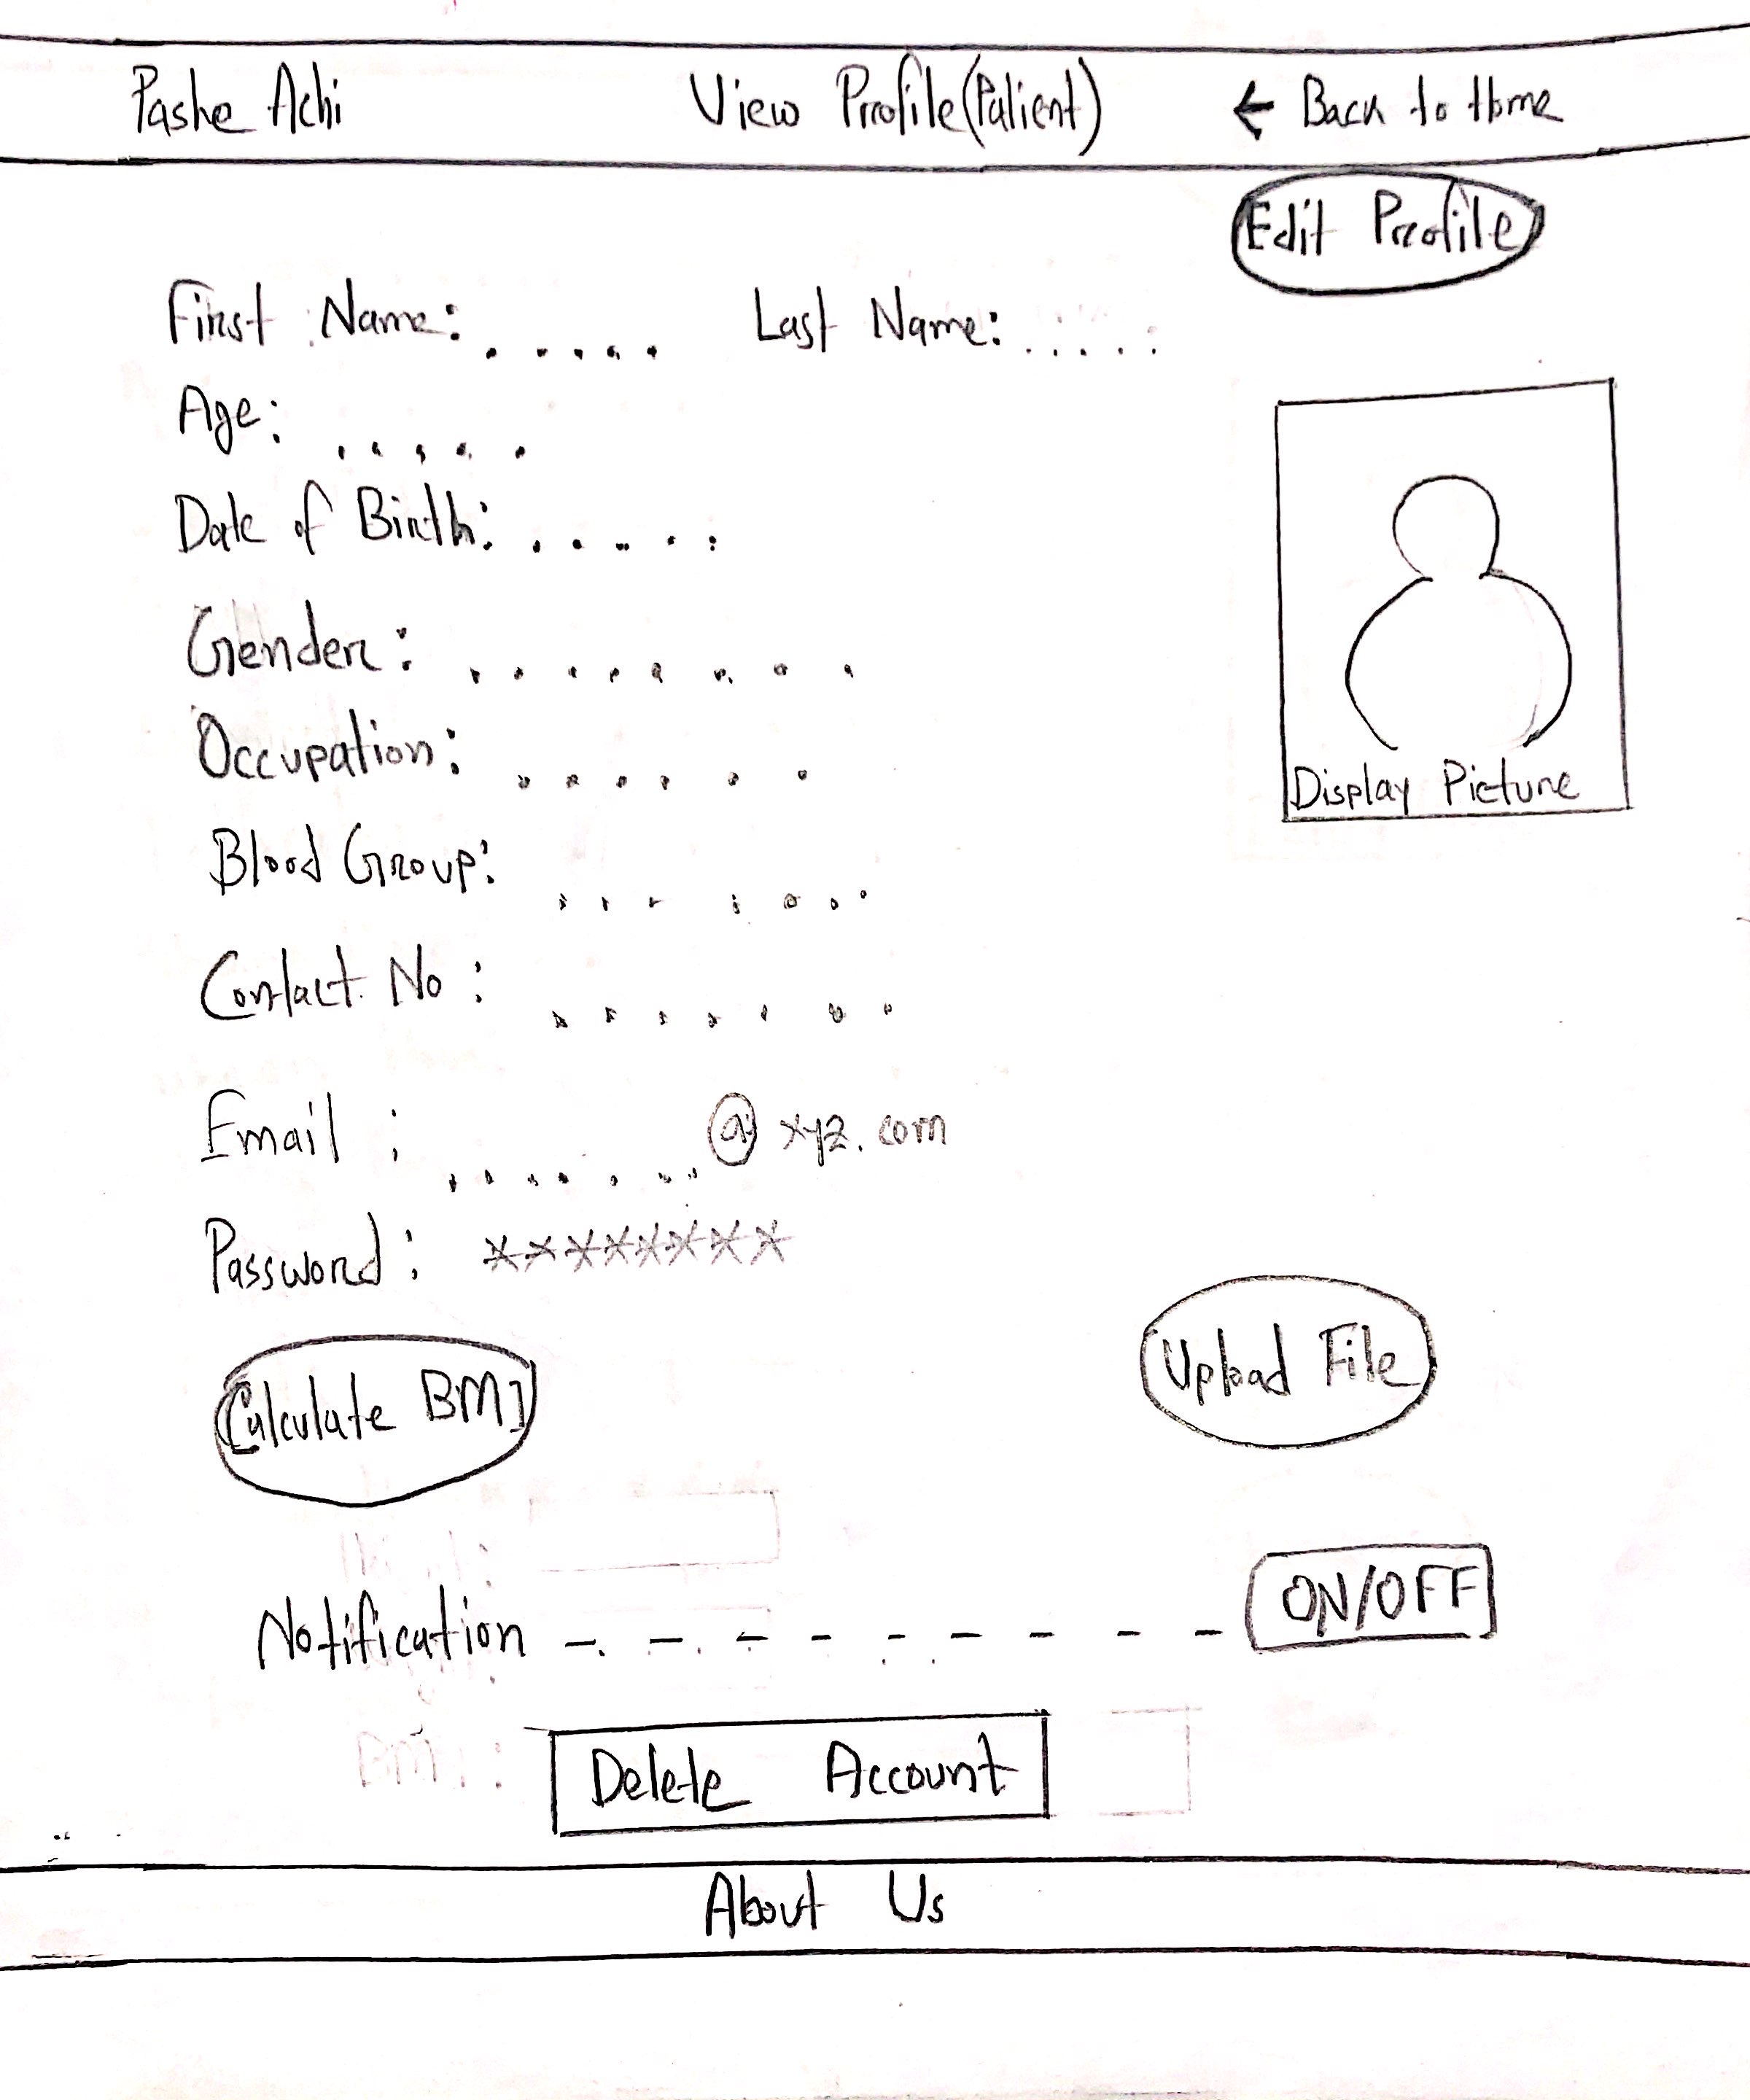 Pashe Achi View Profile(Patient) ← Back to Home
Edit Profile
First Name: ..... Last Name: .....
Age: .....
Date of Birth: .....
Gender: ........
Occupation: ......
Display Picture
Blood Group: .......
Contact No: .......
Email : .......@xyz.com
Password: ********
Calculate BMI Upload File
Notification - - - - - - - - - ON/OFF
Delete Account
About Us